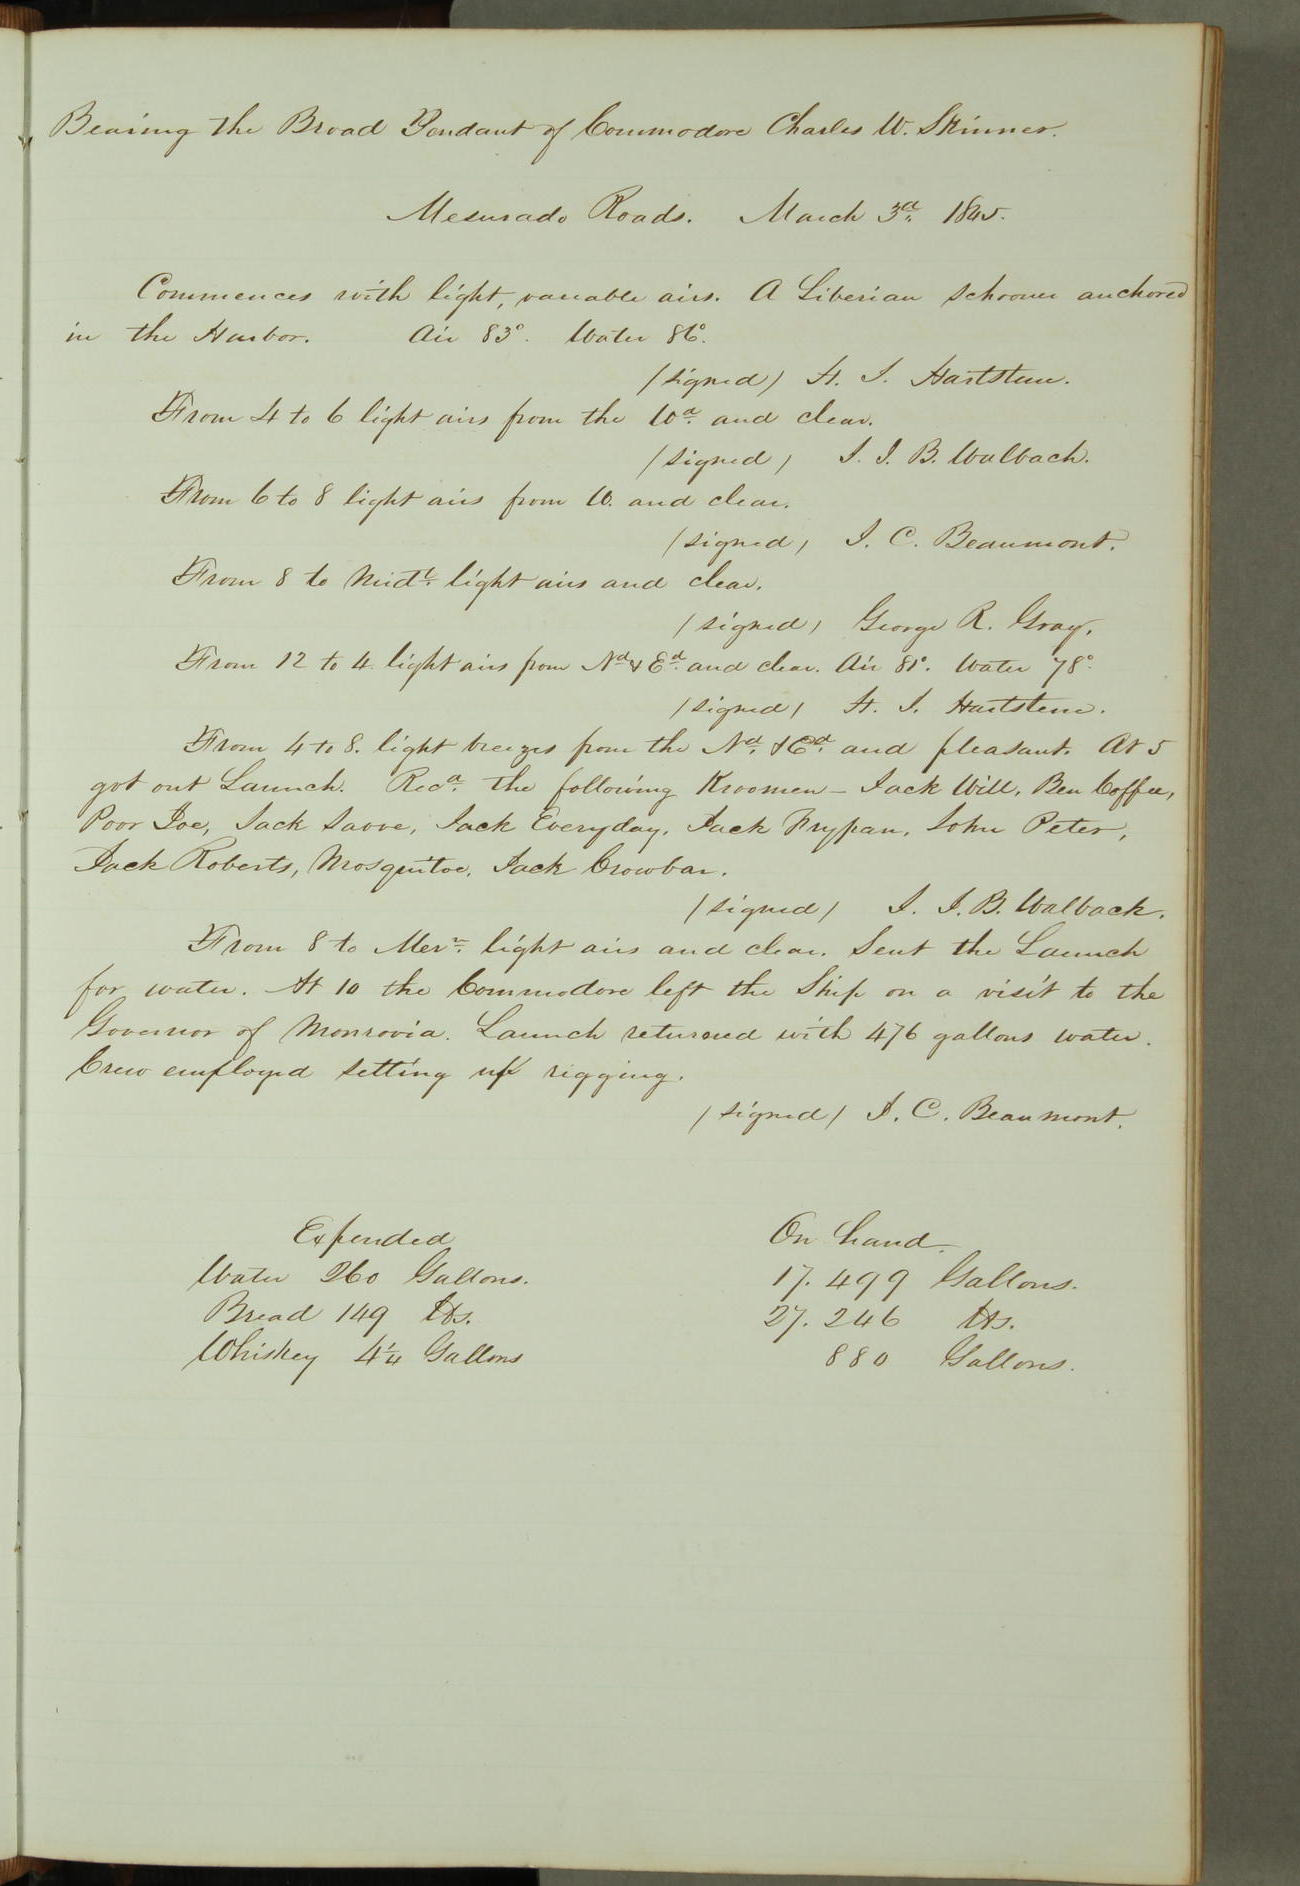 Bearing the Broad Pendant of Commodore Charles W. Skinner.
Mesurado Roads. March 3d. 1845.
Commences with light, variable airs. A Liberian schooner anchored
in the Harbor. Air 83°. Water 86°.
(signed) H. J. Hartstene.
From 4 to 6 light airs from the Wd. and clear.
(signed) J. J. B. Walbach.
From 6 to 8 light airs from W. and clear.
(signed) J. C. Beaumont.
From 8 to Midt. light airs and clear.
(signed) George R. Gray.
From 12 to 4. light airs from Nd. & Ed. and clear. Air 81°. Water 78°.
(signed) H. J. Hartstene.
From 4 to 8. light breezes from the Nd. & Ed. and pleasant. At 5
got out Launch. Recd. the following Kroomen – Jack Will, Ben Coffee,
Poor Joe, Jack Savve, Jack Everyday, Jack Frypan, John Peter,
Jack Roberts, Mosquitoe, Jack Crowbar.
(signed) J. J. B. Walback.
From 8 to Mern. light airs and clear. Sent the Launch
for water. At 10 the Commodore left the Ship on a visit to the
Governor of Monrovia. Launch returned with 476 gallons water.
Crew employed setting up rigging.
(signed) J. C. Beaumont.
Expended On hand.
Water 260 Gallons. 17.499 Gallons.
Bread 149 lbs. 27.246 lbs.
Whiskey 4 1/4 Gallons 880 Gallons.